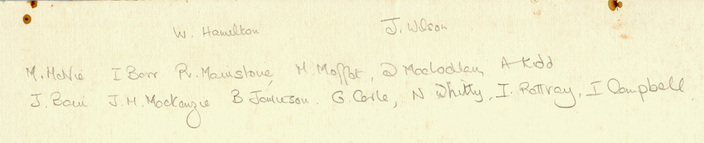 W. Hamilton J. Wilson
M. McNie I Barr R. Mainstone, M. Moffat, D Maclachlan, A Kidd
J. Bain J. M. Mackenzie B Jamieson. G. Carle, N Whitty, I. Rattray, I Campbell